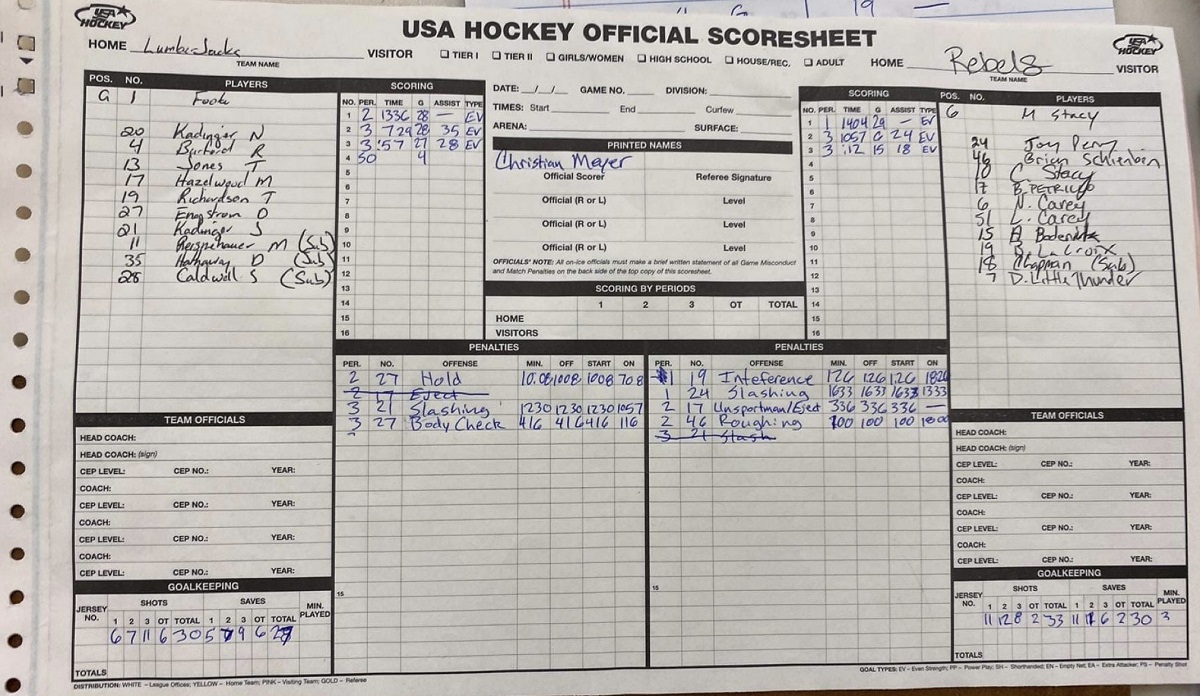 USA HOCKEY OFFICIAL SCORESHEET
USA HOCKEY
HOME LumberJacks VISITOR
TEAM NAME
☐ TIER I ☐ TIER II ☐ GIRLS/WOMEN ☐ HIGH SCHOOL ☐ HOUSE/REC. ☐ ADULT
HOME Rebels VISITOR
TEAM NAME
USA HOCKEY
POS. NO. PLAYERS
G 1 Foote
20 Kadinger N
4 R
13 Jones T
17 Hazelwood M
19 Richardson T
27 Engstrom D
21 Kadinger S
11 M (Sub)
35 Hathaway D (Sub)
28 Caldwell S (Sub)
SCORING
NO. PER. TIME G ASSIST TYPE
1 2 1336 28 — EV
2 3 729 28 35 EV
3 3 :57 27 28 EV
4 SO 4
5
6
7
8
9
10
11
12
13
14
15
16
DATE: __/__/__ GAME NO. DIVISION:
TIMES: Start End Curfew
ARENA: SURFACE:
PRINTED NAMES
Christian Meyer
Official Scorer Referee Signature
Official (R or L) Level
Official (R or L) Level
Official (R or L) Level
OFFICIALS' NOTE: All on-ice officials must make a brief written statement of all Game Misconduct
and Match Penalties on the back side of the top copy of this scoresheet.
SCORING BY PERIODS
1 2 3 OT TOTAL
HOME
VISITORS
SCORING
NO. PER. TIME G ASSIST TYPE
1 1 1404 29 — EV
2 3 1057 6 24 EV
3 3 :12 15 18 EV
4
5
6
7
8
9
10
11
12
13
14
15
16
POS. NO. PLAYERS
G M Stacy
24 Joy Perry
46 Brian Schienbein
10 C Stacy
17 B. PETRICK
6 N. Carey
51 L. Carey
15 A
19 B. LaCroix
18 Chapman (Sub)
7 D. Little Thunder
PENALTIES
PER. NO. OFFENSE MIN. OFF START ON
2 27 Hold 10:08 1008 1008 708
2 17 Eject
3 21 Slashing 1230 1230 1230 1057
3 27 Body Check 416 416 416 116
15
PENALTIES
PER. NO. OFFENSE MIN. OFF START ON
1 19 Inteference 126 126 126 1826
1 24 Slashing 1633 1633 1633 1333
2 17 Unsportman/Eject 336 336 336 —
2 46 Roughing 100 100 100 1800
3 21 Slash
15
TEAM OFFICIALS
HEAD COACH:
HEAD COACH: (sign)
CEP LEVEL: CEP NO.: YEAR:
COACH:
CEP LEVEL: CEP NO.: YEAR:
COACH:
CEP LEVEL: CEP NO.: YEAR:
COACH:
CEP LEVEL: CEP NO.: YEAR:
GOALKEEPING
JERSEY NO. SHOTS SAVES MIN. PLAYED
1 2 3 OT TOTAL 1 2 3 OT TOTAL
6 7 11 6 30 5 9 6
TOTALS
TEAM OFFICIALS
HEAD COACH:
HEAD COACH: (sign)
CEP LEVEL: CEP NO.: YEAR:
COACH:
CEP LEVEL: CEP NO.: YEAR:
COACH:
CEP LEVEL: CEP NO.: YEAR:
COACH:
CEP LEVEL: CEP NO.: YEAR:
GOALKEEPING
JERSEY NO. SHOTS SAVES MIN. PLAYED
1 2 3 OT TOTAL 1 2 3 OT TOTAL
11 12 8 2 33 11 6 2 30 3
TOTALS
DISTRIBUTION: WHITE – League Offices; YELLOW – Home Team; PINK – Visiting Team; GOLD – Referee
GOAL TYPES: EV – Even Strength; PP – Power Play; SH – Shorthanded; EN – Empty Net; EA – Extra Attacker; PS – Penalty Shot